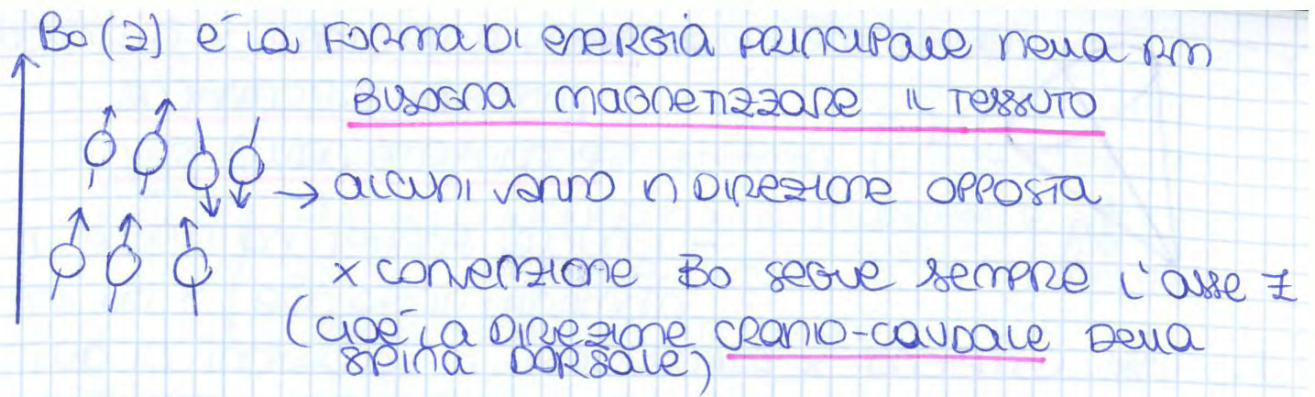 Bo (z) è la FORMA DI eneRGià principale nella RM
BISOGNA MAGNETIZZARE IL TESSUTO
→ alcuni vanno in DIREZIONE OPPOSTA
x convenzione Bo segue sempre l'asse z
(cioè la DIREZIONE CRANIO-CAUDALE Della
SPINA DORSALE)